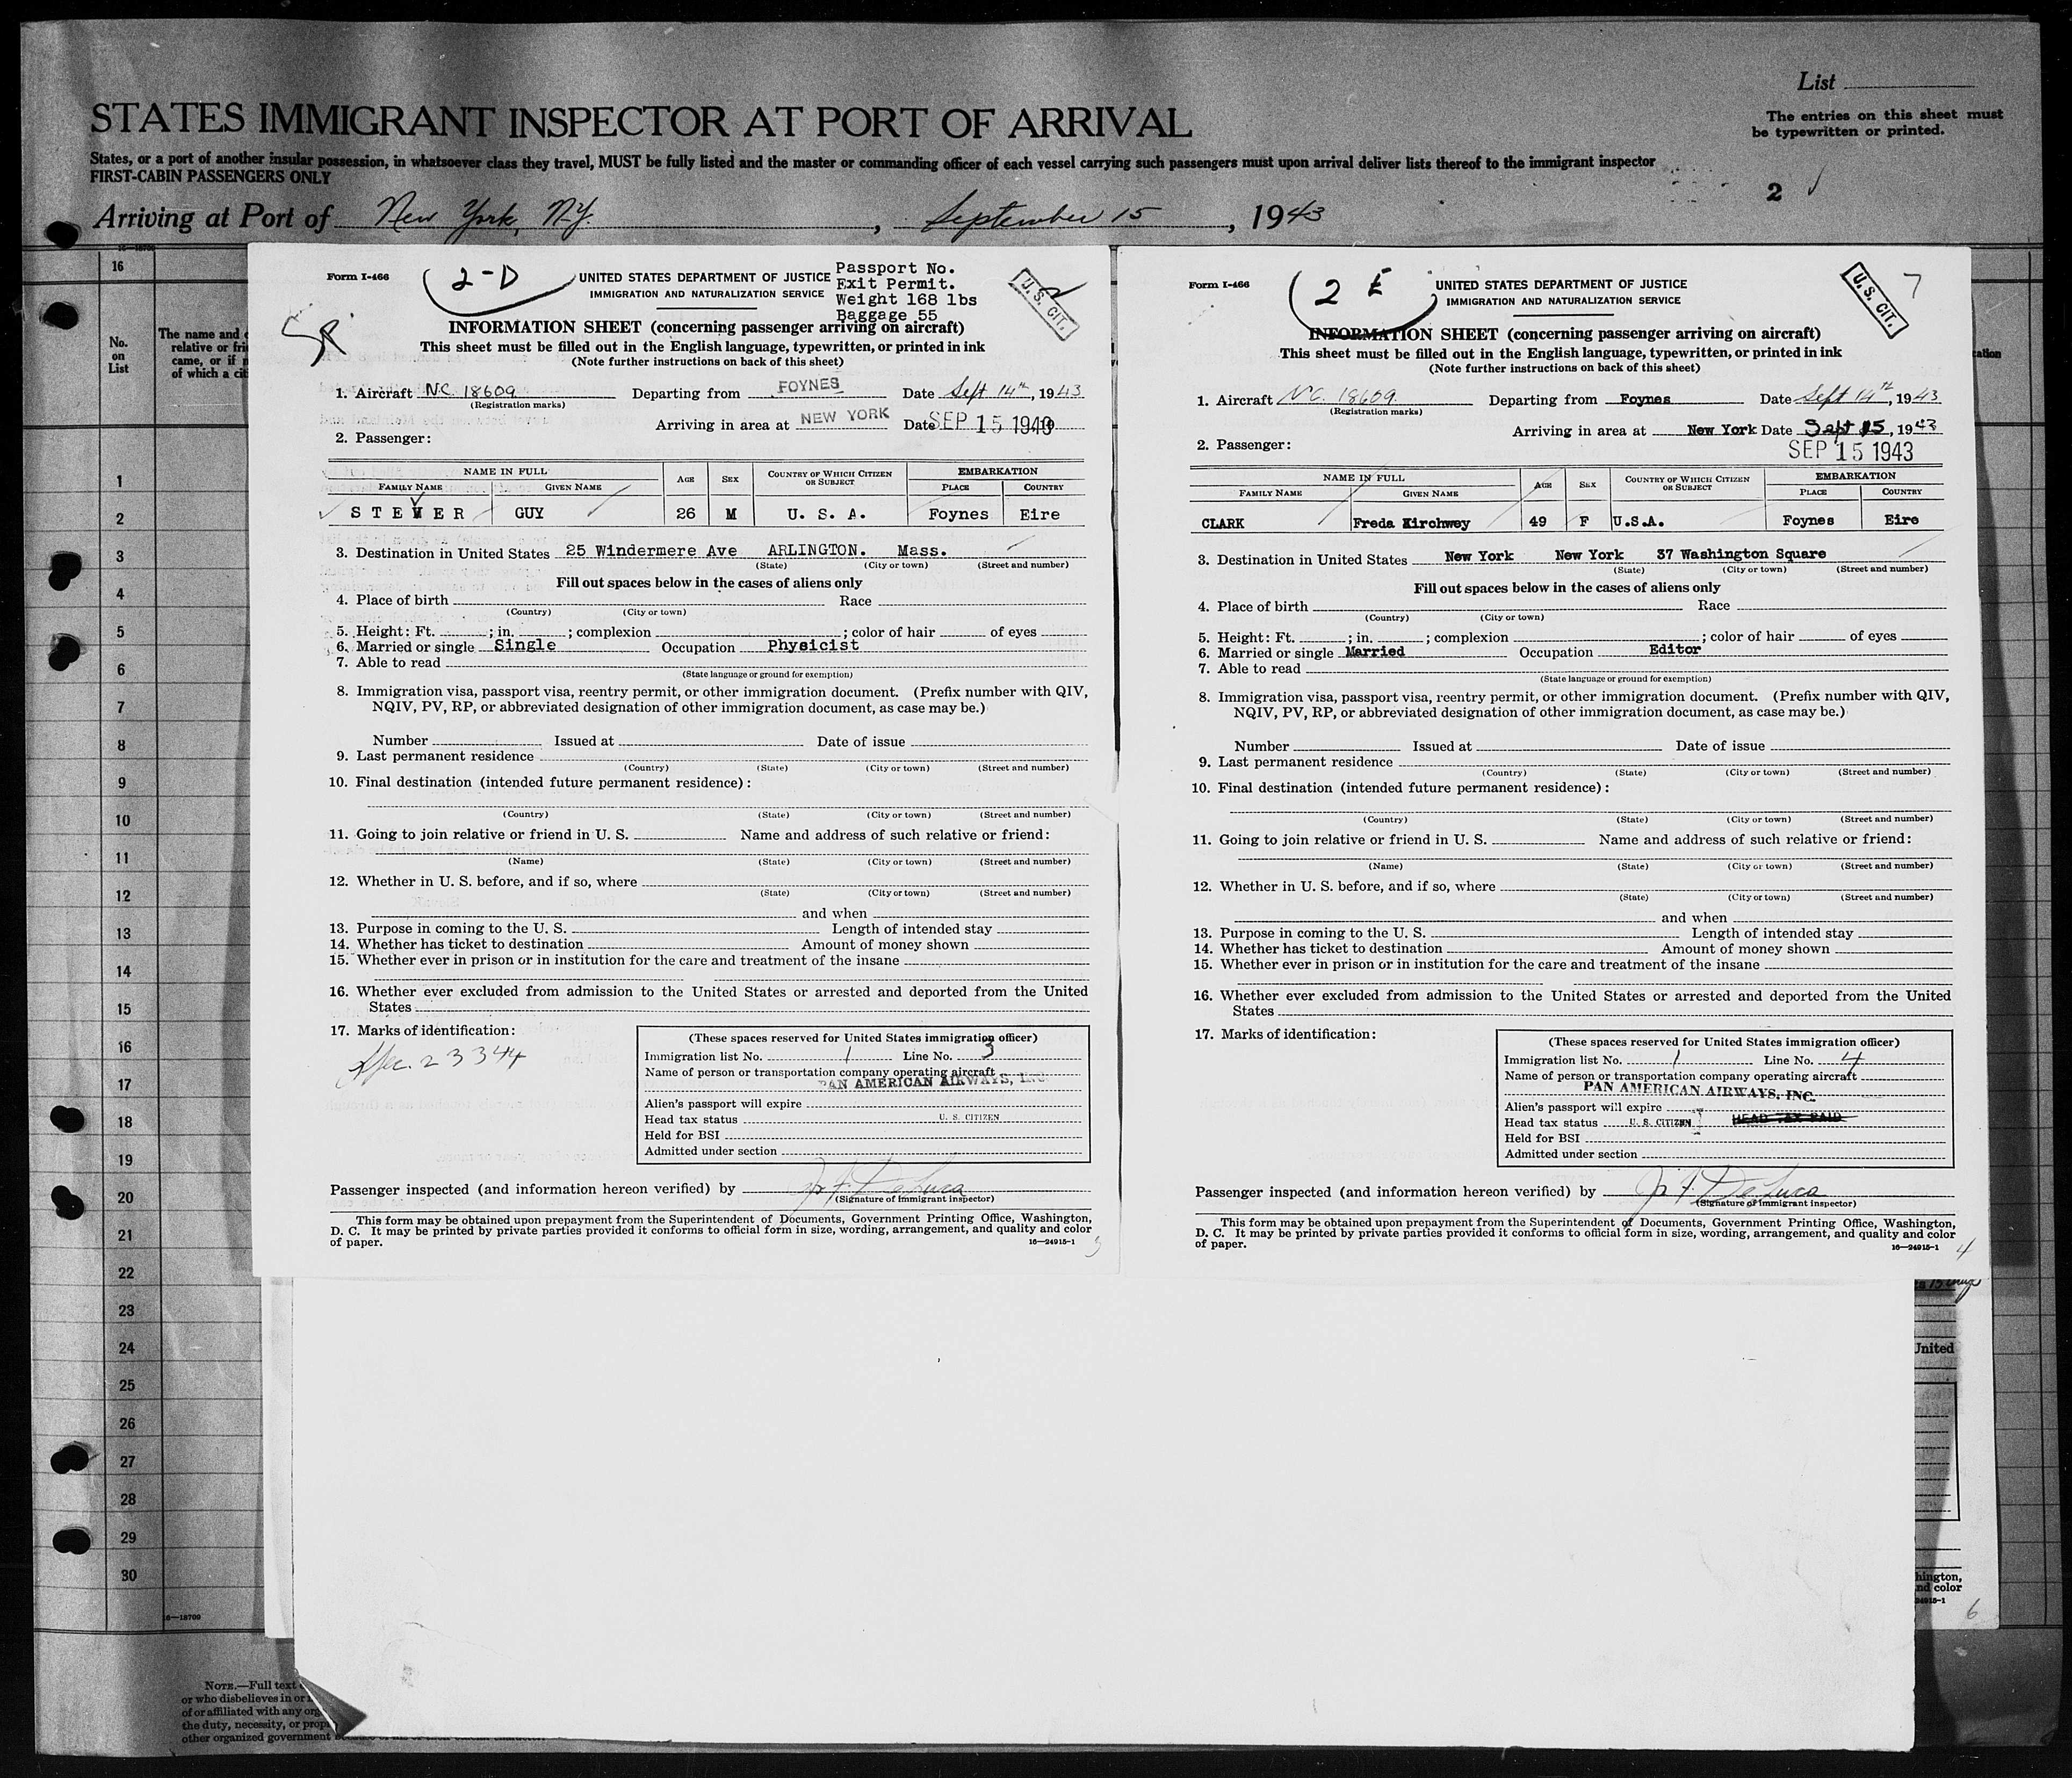 List
STATES IMMIGRANT INSPECTOR AT PORT OF ARRIVAL
The entries on this sheet must
be typewritten or printed.
States, or a port of another insular possession, in whatsoever class they travel, MUST be fully listed and the master or commanding officer of each vessel carrying such passengers must upon arrival deliver lists thereof to the immigrant inspector
FIRST-CABIN PASSENGERS ONLY
2
Arriving at Port of New York, N.Y., September 15, 1943
16
No.
on
List
The name and
relative or
came, or if
of which a
1
2
3
4
5
6
7
8
9
10
11
12
13
14
15
16
17
18
19
20
21
22
23
24
25
26
27
28
29
30
16—18709
NOTE.—Full text
or who disbelieves in or
of or affiliated with any
the duty, necessity, or
other organized government
Form I-466
2-D
UNITED STATES DEPARTMENT OF JUSTICE
IMMIGRATION AND NATURALIZATION SERVICE
Passport No.
Exit Permit.
Weight 168 lbs
Baggage 55
U.S. CIT.
INFORMATION SHEET (concerning passenger arriving on aircraft)
This sheet must be filled out in the English language, typewritten, or printed in ink
(Note further instructions on back of this sheet)
1. Aircraft NC 18609 Departing from FOYNES Date Sept 14th, 1943
(Registration marks)
Arriving in area at NEW YORK Date SEP 15 194
2. Passenger:
NAME IN FULL AGE SEX COUNTRY OF WHICH CITIZEN OR SUBJECT EMBARKATION
FAMILY NAME GIVEN NAME PLACE COUNTRY
STEVER GUY 26 M U. S. A. Foynes Eire
3. Destination in United States 25 Windermere Ave ARLINGTON. Mass.
(State) (City or town) (Street and number)
Fill out spaces below in the cases of aliens only
4. Place of birth Race
(Country) (City or town)
5. Height: Ft. ; in. ; complexion ; color of hair of eyes
6. Married or single Single Occupation Physicist
7. Able to read
(State language or ground for exemption)
8. Immigration visa, passport visa, reentry permit, or other immigration document. (Prefix number with QIV,
NQIV, PV, RP, or abbreviated designation of other immigration document, as case may be.)
Number Issued at Date of issue
9. Last permanent residence
(Country) (State) (City or town) (Street and number)
10. Final destination (intended future permanent residence):
(Country) (State) (City or town) (Street and number)
11. Going to join relative or friend in U. S. Name and address of such relative or friend:
(Name) (State) (City or town) (Street and number)
12. Whether in U. S. before, and if so, where
(State) (City or town) (Street and number)
and when
13. Purpose in coming to the U. S. Length of intended stay
14. Whether has ticket to destination Amount of money shown
15. Whether ever in prison or in institution for the care and treatment of the insane
16. Whether ever excluded from admission to the United States or arrested and deported from the United
States
17. Marks of identification:
23344
(These spaces reserved for United States immigration officer)
Immigration list No. 1 Line No. 3
Name of person or transportation company operating aircraft
PAN AMERICAN AIRWAYS, INC.
Alien's passport will expire
Head tax status U. S. CITIZEN
Held for BSI
Admitted under section
Passenger inspected (and information hereon verified) by Jos F. DeLuca
(Signature of immigrant inspector)
This form may be obtained upon prepayment from the Superintendent of Documents, Government Printing Office, Washington,
D. C. It may be printed by private parties provided it conforms to official form in size, wording, arrangement, and quality and color
of paper.
16—24915-1
3
Form I-466
2 E
UNITED STATES DEPARTMENT OF JUSTICE
IMMIGRATION AND NATURALIZATION SERVICE
U.S. CIT.
7
INFORMATION SHEET (concerning passenger arriving on aircraft)
This sheet must be filled out in the English language, typewritten, or printed in ink
(Note further instructions on back of this sheet)
1. Aircraft NC. 18609 Departing from Foynes Date Sept 14th, 1943
(Registration marks)
Arriving in area at New York Date Sept 15, 1943
2. Passenger:
SEP 15 1943
NAME IN FULL AGE SEX COUNTRY OF WHICH CITIZEN OR SUBJECT EMBARKATION
FAMILY NAME GIVEN NAME PLACE COUNTRY
CLARK Freda Kirchwey 49 F U.S.A. Foynes Eire
3. Destination in United States New York New York 37 Washington Square
(State) (City or town) (Street and number)
Fill out spaces below in the cases of aliens only
4. Place of birth Race
(Country) (City or town)
5. Height: Ft. ; in. ; complexion ; color of hair of eyes
6. Married or single Married Occupation Editor
7. Able to read
(State language or ground for exemption)
8. Immigration visa, passport visa, reentry permit, or other immigration document. (Prefix number with QIV,
NQIV, PV, RP, or abbreviated designation of other immigration document, as case may be.)
Number Issued at Date of issue
9. Last permanent residence
(Country) (State) (City or town) (Street and number)
10. Final destination (intended future permanent residence):
(Country) (State) (City or town) (Street and number)
11. Going to join relative or friend in U. S. Name and address of such relative or friend:
(Name) (State) (City or town) (Street and number)
12. Whether in U. S. before, and if so, where
(State) (City or town) (Street and number)
and when
13. Purpose in coming to the U. S. Length of intended stay
14. Whether has ticket to destination Amount of money shown
15. Whether ever in prison or in institution for the care and treatment of the insane
16. Whether ever excluded from admission to the United States or arrested and deported from the United
States
17. Marks of identification:
(These spaces reserved for United States immigration officer)
Immigration list No. 1 Line No. 4
Name of person or transportation company operating aircraft
PAN AMERICAN AIRWAYS, INC.
Alien's passport will expire
Head tax status U. S. CITIZEN HEAD TAX PAID
Held for BSI
Admitted under section
Passenger inspected (and information hereon verified) by Jos F. DeLuca
(Signature of immigrant inspector)
This form may be obtained upon prepayment from the Superintendent of Documents, Government Printing Office, Washington,
D. C. It may be printed by private parties provided it conforms to official form in size, wording, arrangement, and quality and color
of paper.
16—24915-1
4
United
hington,
nd color
24915-1
6